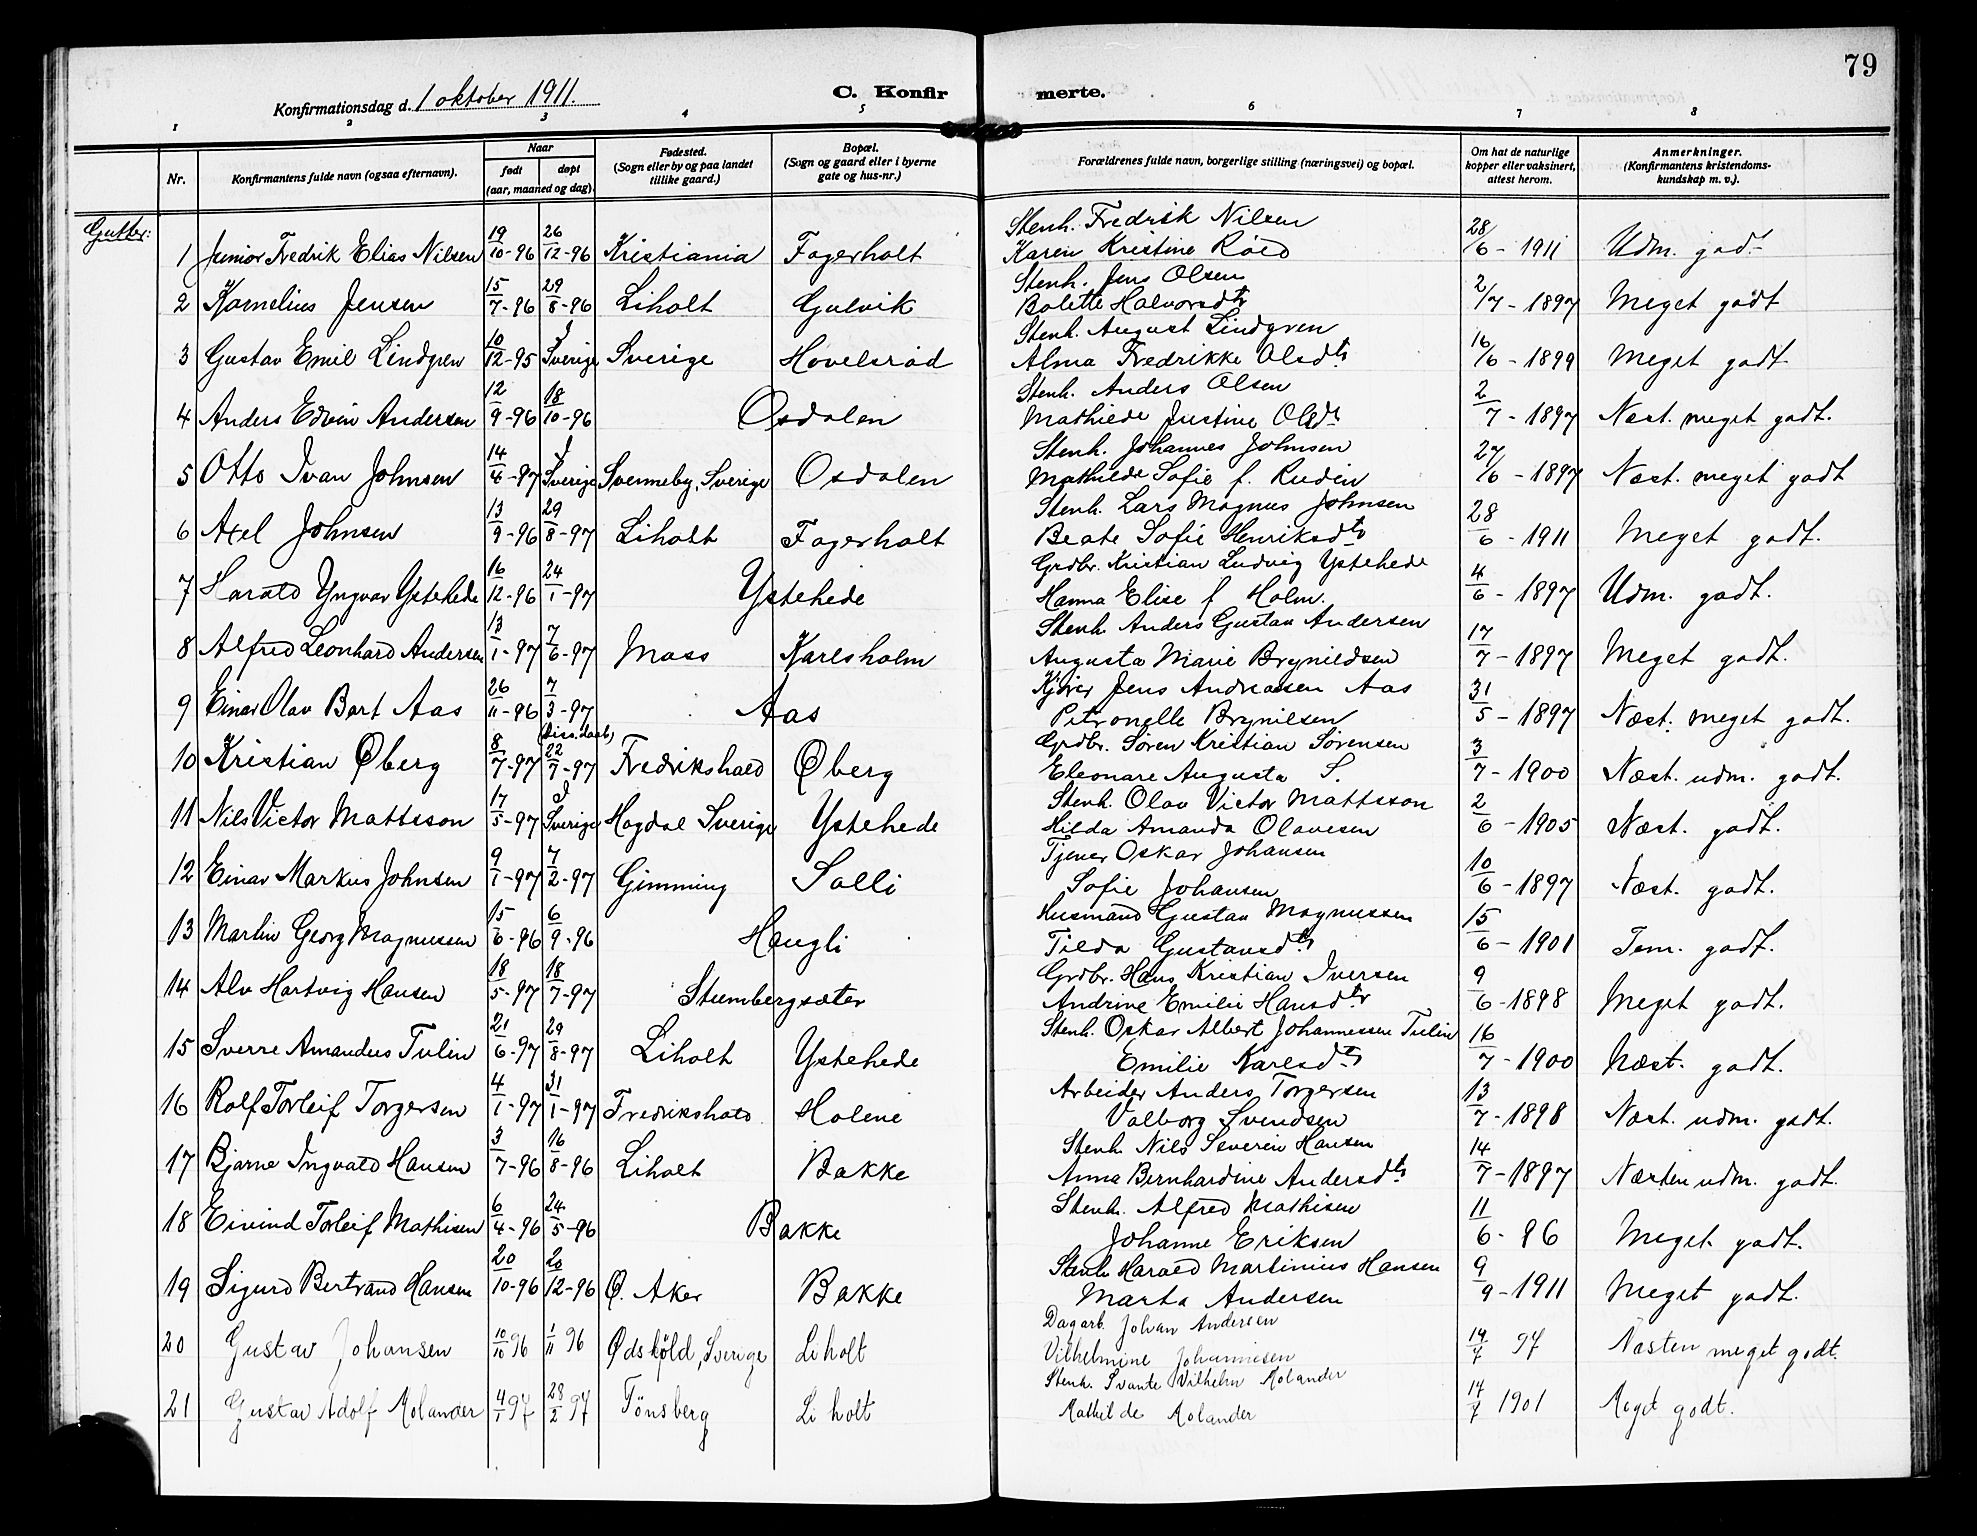 79
Konfirmationsdag d. 1 oktober 1911. C. Konfirmerte.
1 2 3 4 5 6 7 8
Nr. Konfirmantens fulde navn (ogsaa efternavn). Naar født døpt (aar, maaned og dag). Fødested. (Sogn eller by og paa landet tillike gaard.) Bopæl. (Sogn og gaard eller i byerne gate og hus-nr.) Forældrenes fulde navn, borgerlige stilling (næringsvei) og bopæl. Om hat de naturlige kopper eller vaksinert, attest herom. Anmerkninger. (Konfirmantens kristendomskundskap m. v.).
Gutter:
1 Junior Fredrik Elias Nilsen 19/10-96 26/12-96 Kristiania Fagerholt Stenh. Fredrik Nilsen
Karen Kristine Röed 28/6-1911 Udm. godt
2 Kornelius Jensen 15/7-96 29/8-96 Liholt Gulvik Stenh. Jens Olsen
Bolette Halvorsdtr 2/7-1897 Meget godt
3 Gustav Emil Lindgren 10/12-95 I Sverige Sverige Hovelsrød Stenh. August Lindgren
Alma Fredrikke Olsdtr 16/6-1899 Meget godt
4 Anders Edvin Andersen 12/9-96 18/10-96 Osdalen Stenh. Anders Olsen
Mathilde Justine Olsdtr 2/7-1897 Næst. meget godt.
5 Otto Ivan Johnsen 14/4-97 I Sverige Svenneby, Sverige Osdalen Stenh. Johannes Johnsen
Mathilde Sofie f. Rudin 27/6-1897 Næst. meget godt
6 Axel Johnsen 13/9-96 29/8-97 Liholt Fagerholt Stenh. Lars Magnus Johnsen
Beate Sofie Henriksdtr 28/6-1911 Meget godt.
7 Harald Yngvar Ystehede 16/12-96 24/1-97 Ystehede Grdbr. Kristian Ludvig Ystehede
Hanna Elise f Holm. 4/6-1897 Udm. godt.
8 Alfred Leonhard Andersen 13/1-97 7/6-97 Moss Karlsholm Stenh. Anders Gustav Andersen
Augusta Marie Brynildsen 17/7-1897 Meget godt.
9 Einar Olav Bart Aas 26/11-96 7/3-97 Aas Kjører Jens Andreassen Aas
Petronelle Brynilsen 31/5-1897 Næst. meget godt.
10 Kristian Øberg 8/7-97 (diss. daab) 22/7-97 Fredrikshald Øberg Grdbr. Søren Kristian Sørensen
Eleonare Augusta S. 3/7-1900 Næst. udm. godt.
11 Nils Victor Mattsson 17/5-97 I Sverige Hogdal Sverige Ystehede Stenh. Olav Victor Mattsson
Hilda Amanda Olavesen 2/6-1905 Næst. godt.
12 Einar Markus Johnsen 9/1-97 7/2-97 Gimming Solli Tjener Oskar Johansen
Sofie Johansen 10/6-1897 Næst. godt.
13 Martin Georg Magnussen 15/6-96 6/9-96 Haugli Husmand Gustav Magnussen
Tilda Gustavsdtr 15/6-1901 Tem. godt.
14 Alv Hartvig Hansen 18/5-97 18/7-97 Stumbergsæter Grdbr. Hans Kristian Iversen
Andrine Emilie Hansdtr 9/6-1898 Meget godt.
15 Sverre Amandus Tulin 21/6-97 29/8-97 Liholt Ystehede Stenh. Oskar Albert Johannessen Tulin
Emilie Karlsdtr 16/7-1900 Næst. godt.
16 Rolf Torleif Torgersen 4/1-97 31/1-97 Fredrikshald Holene Arbeider Anders Torgersen
Valborg Svendsen 13/7-1898 Næst. udm. godt.
17 Bjarne Ingvald Hansen 3/7-96 16/8-96 Liholt Bakke Stenh. Nils Severin Hansen
Anna Bernhardine Andersdtr 14/7-1897 Næsten udm. godt.
18 Eivind Torleif Mathisen 6/4-96 24/5-96 Bakke Stenh. Alfred Mathisen
Johanne Eriksen 11/6-96 Meget godt.
19 Sigurd Bertrand Hansen 20/10-96 20/12-96 Ø. Aker Bakke Stenh. Harald Martinius Hansen
Marta Andersen 9/9-1911 Meget godt.
20 Gustav Johansen 10/10 96 1/11 96 Ødsköld, Sverige Liholt Dagarb. Johan Andersen
Vilhelmine Johannesen 14/7 97 Næsten meget godt.
21 Gustav Adolf Molander 4/1 97 28/2 97 Tönsberg Liholt Stenh. Svante Vilhelm Molander
Mathilde Molander 14/7 1901 Meget godt.